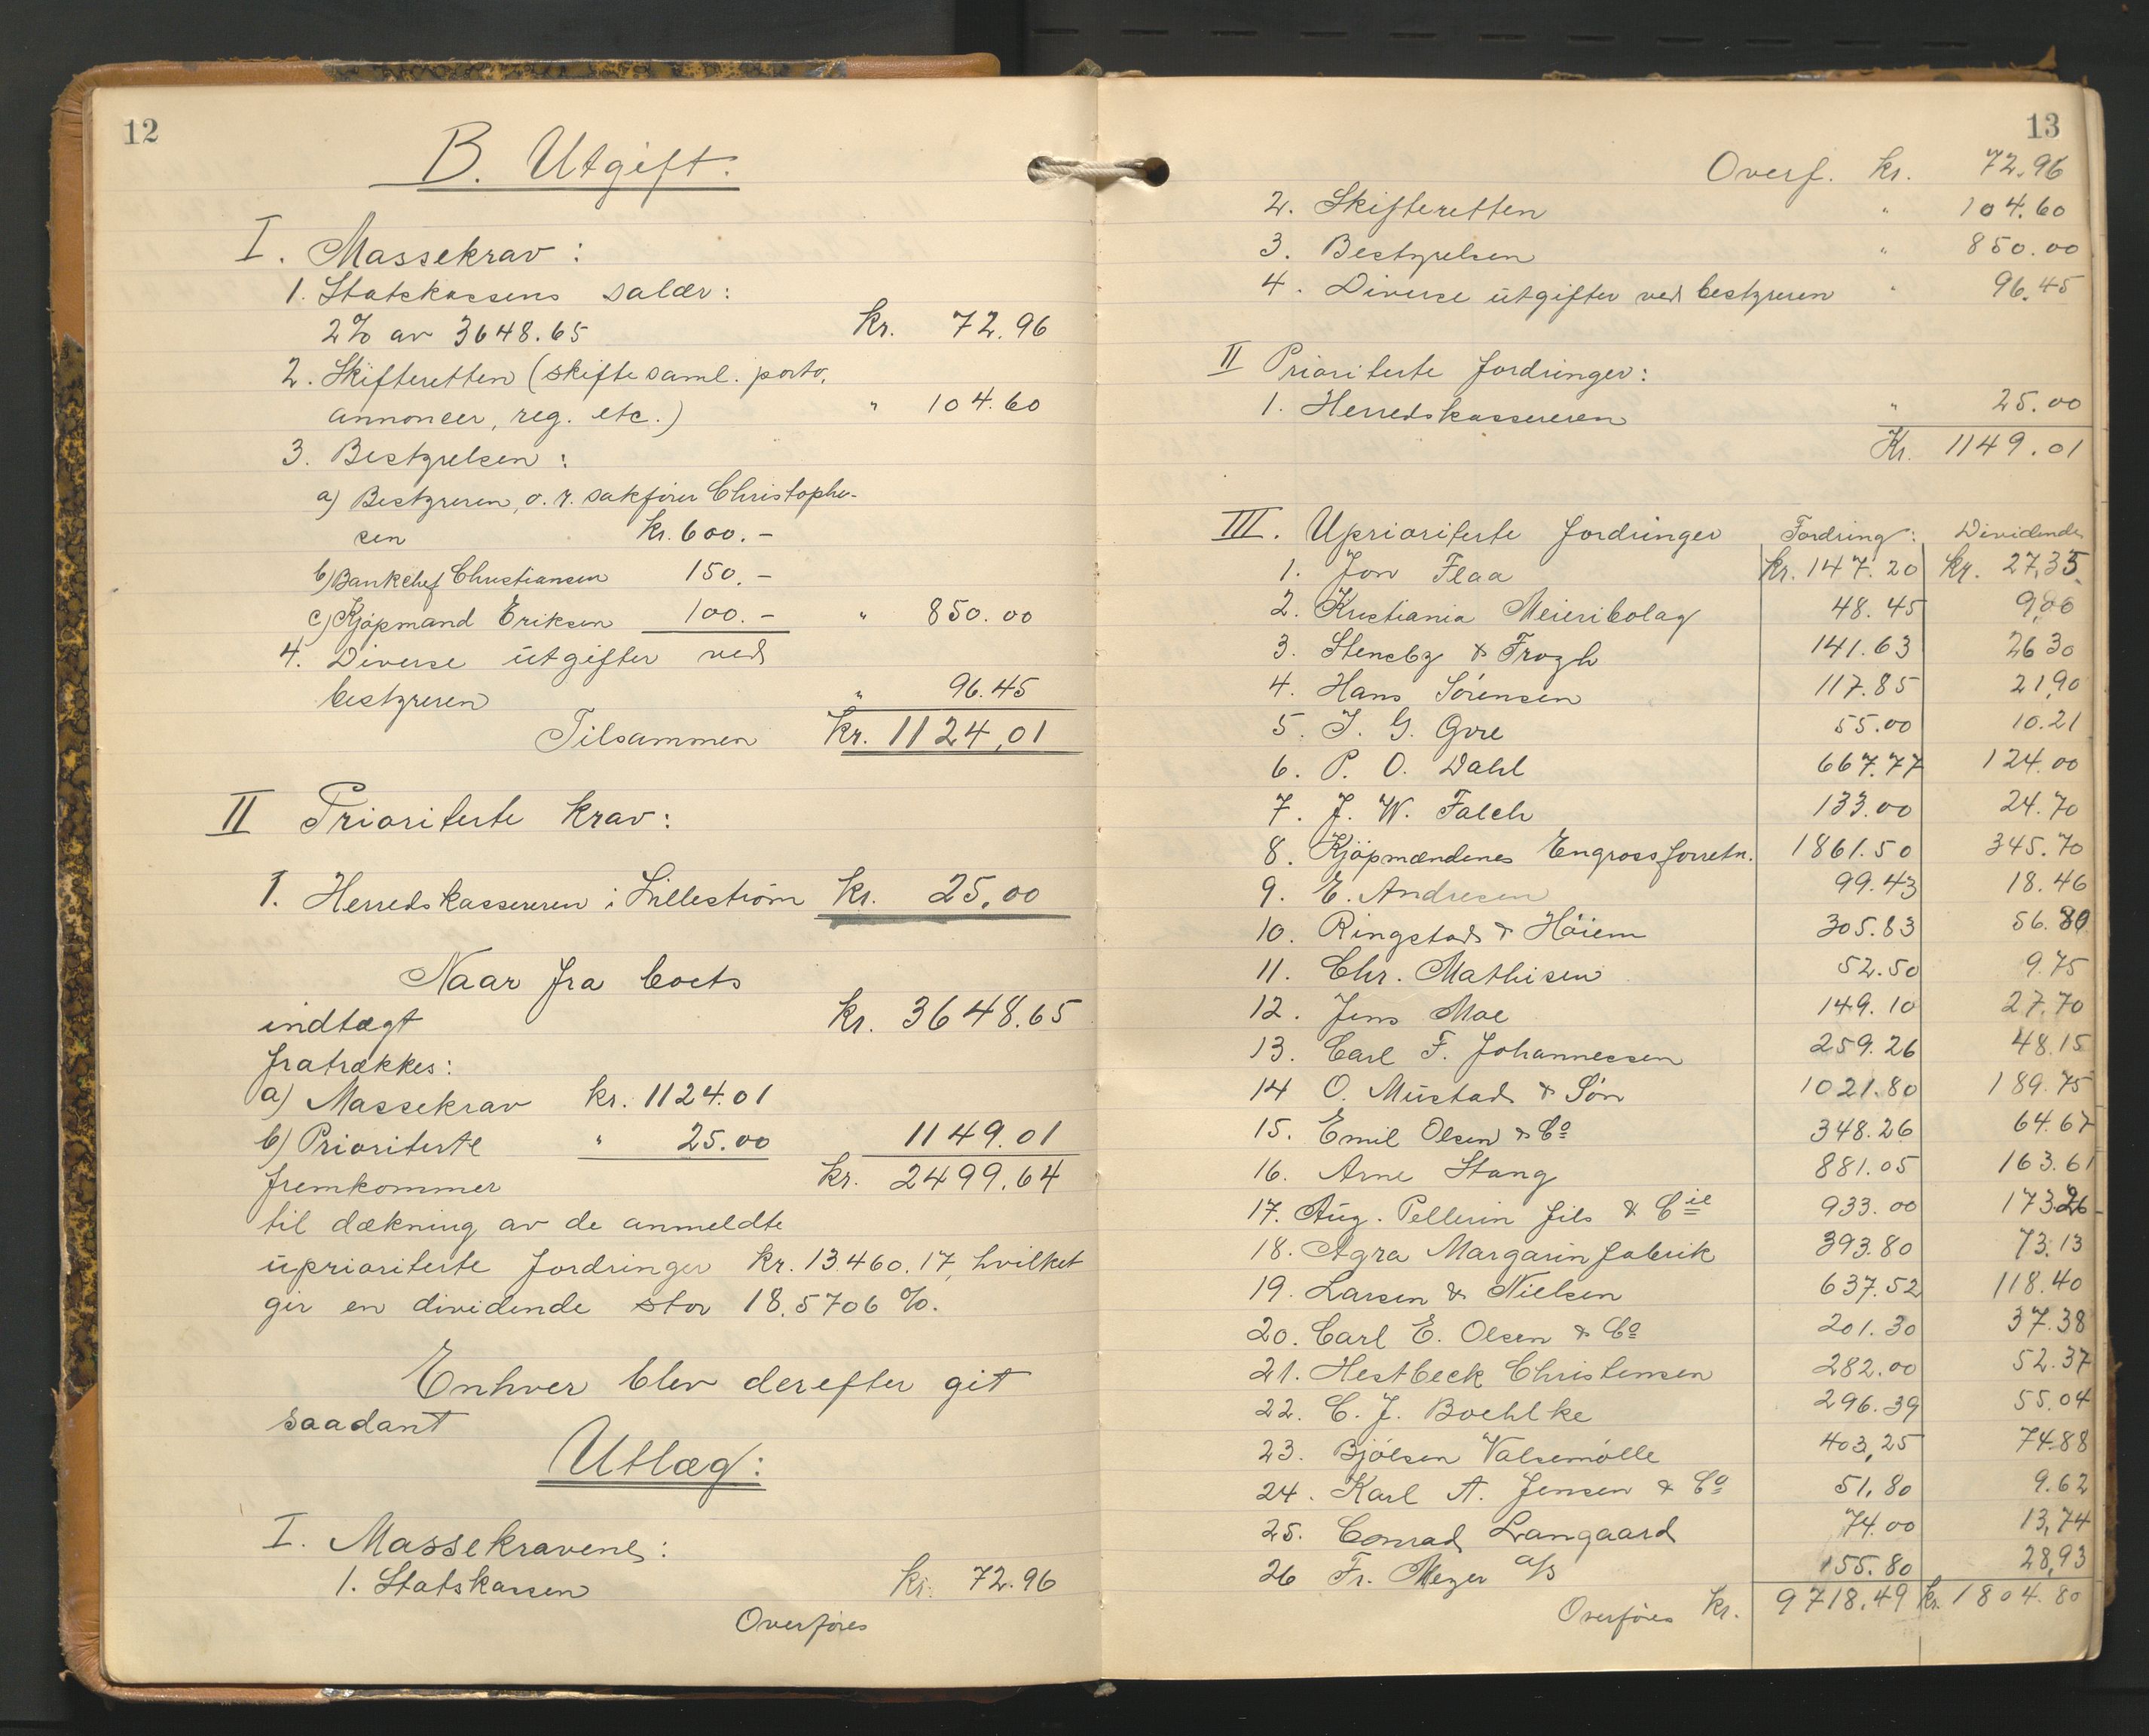 12
B. Utgift.
I. Massekrav:
1. Statskassens salær:
2% av 3648.65 kr. 72.96
2. Skifteretten (skiftesaml. porto,
annoncer, reg. etc.) " 104.60
3. Bestyrelsen:
a) Bestyreren, o. r. sakfører Christopher-
sen kr. 600.-
b) Bankchef Christiansen 150.-
c) Kjøpmand Eriksen 100.- " 850.00
4. Diverse utgifter ved
bestyreren " 96.45
Tilsammen kr. 1124,01
II Prioriterte krav:
1. Herredskassereren i Lillestrøm kr. 25,00
Naar fra boets
indtægt kr. 3648.65
fratrækkes:
a) Massekrav kr. 1124.01
b) Prioriterte " 25.00 1149.01
fremkommer kr. 2499.64
til dækning av de anmeldte
uprioriterte fordringer kr. 13.460.17, hvilket
gir en dividende stor 18,5706 %.
Enhver blev derefter git
saadant
Utlæg:
I. Massekravene:
1. Statskassen kr. 72.96
Overføres
13
Overf. kr. 72.96
2. Skifteretten " 104.60
3. Bestyrelsen " 850.00
4. Diverse utgifter ved bestyreren " 96.45
II Prioriterte fordringer:
1. Herredskassereren " 25.00
Kr. 1149.01
III. Uprioriterte fordringer Fordring: Dividende
1. Jon Flaa kr. 147.20 kr. 27,35
2. Kristiania Meieribolag 48.45 9,00
3. Stensby & Trogh 141.63 26 30
4. Hans Sörensen 117.85 21,90
5. J. G. Gore 55.00 10.21
6. P. O. Dahl 667.77 124.00
7. J. W. Falch 133.00 24.70
8. Kjøpmændenes Engrossforretn. 1861.50 345.70
9. E. Andresen 99.43 18.46
10. Ringstad & Höiem 305.83 56.80
11. Chr. Mathisen 52.50 9.75
12. Jens Moe 149.10 27.70
13. Carl F. Johannessen 259.26 48.15
14 O. Mustad & Sön 1021.80 189.75
15. Emil Olsen & Co 348.26 64.67
16. Arne Stang 881.05 163.61
17. Aug. Pellerin fils & Cie 933.00 173.26
18. Agra Margarinfabrik 393.80 73.13
19. Larsen & Nielsen 637.52 118.40
20. Carl E. Olsen & Co 201.30 37.38
21. Hestbeck Christensen 282.00 52.37
22. C. J. Boehlke 296.39 55.04
23. Bjölsen Valsemölle 403,25 74.88
24. Karl A. Jensen & Co 51,80 9.62
25. Conrad Langaard 74.00 13,74
26 Fr. Meyer a/s 155.80 28,93
Overføres kr. 9718.49 kr. 1804.80